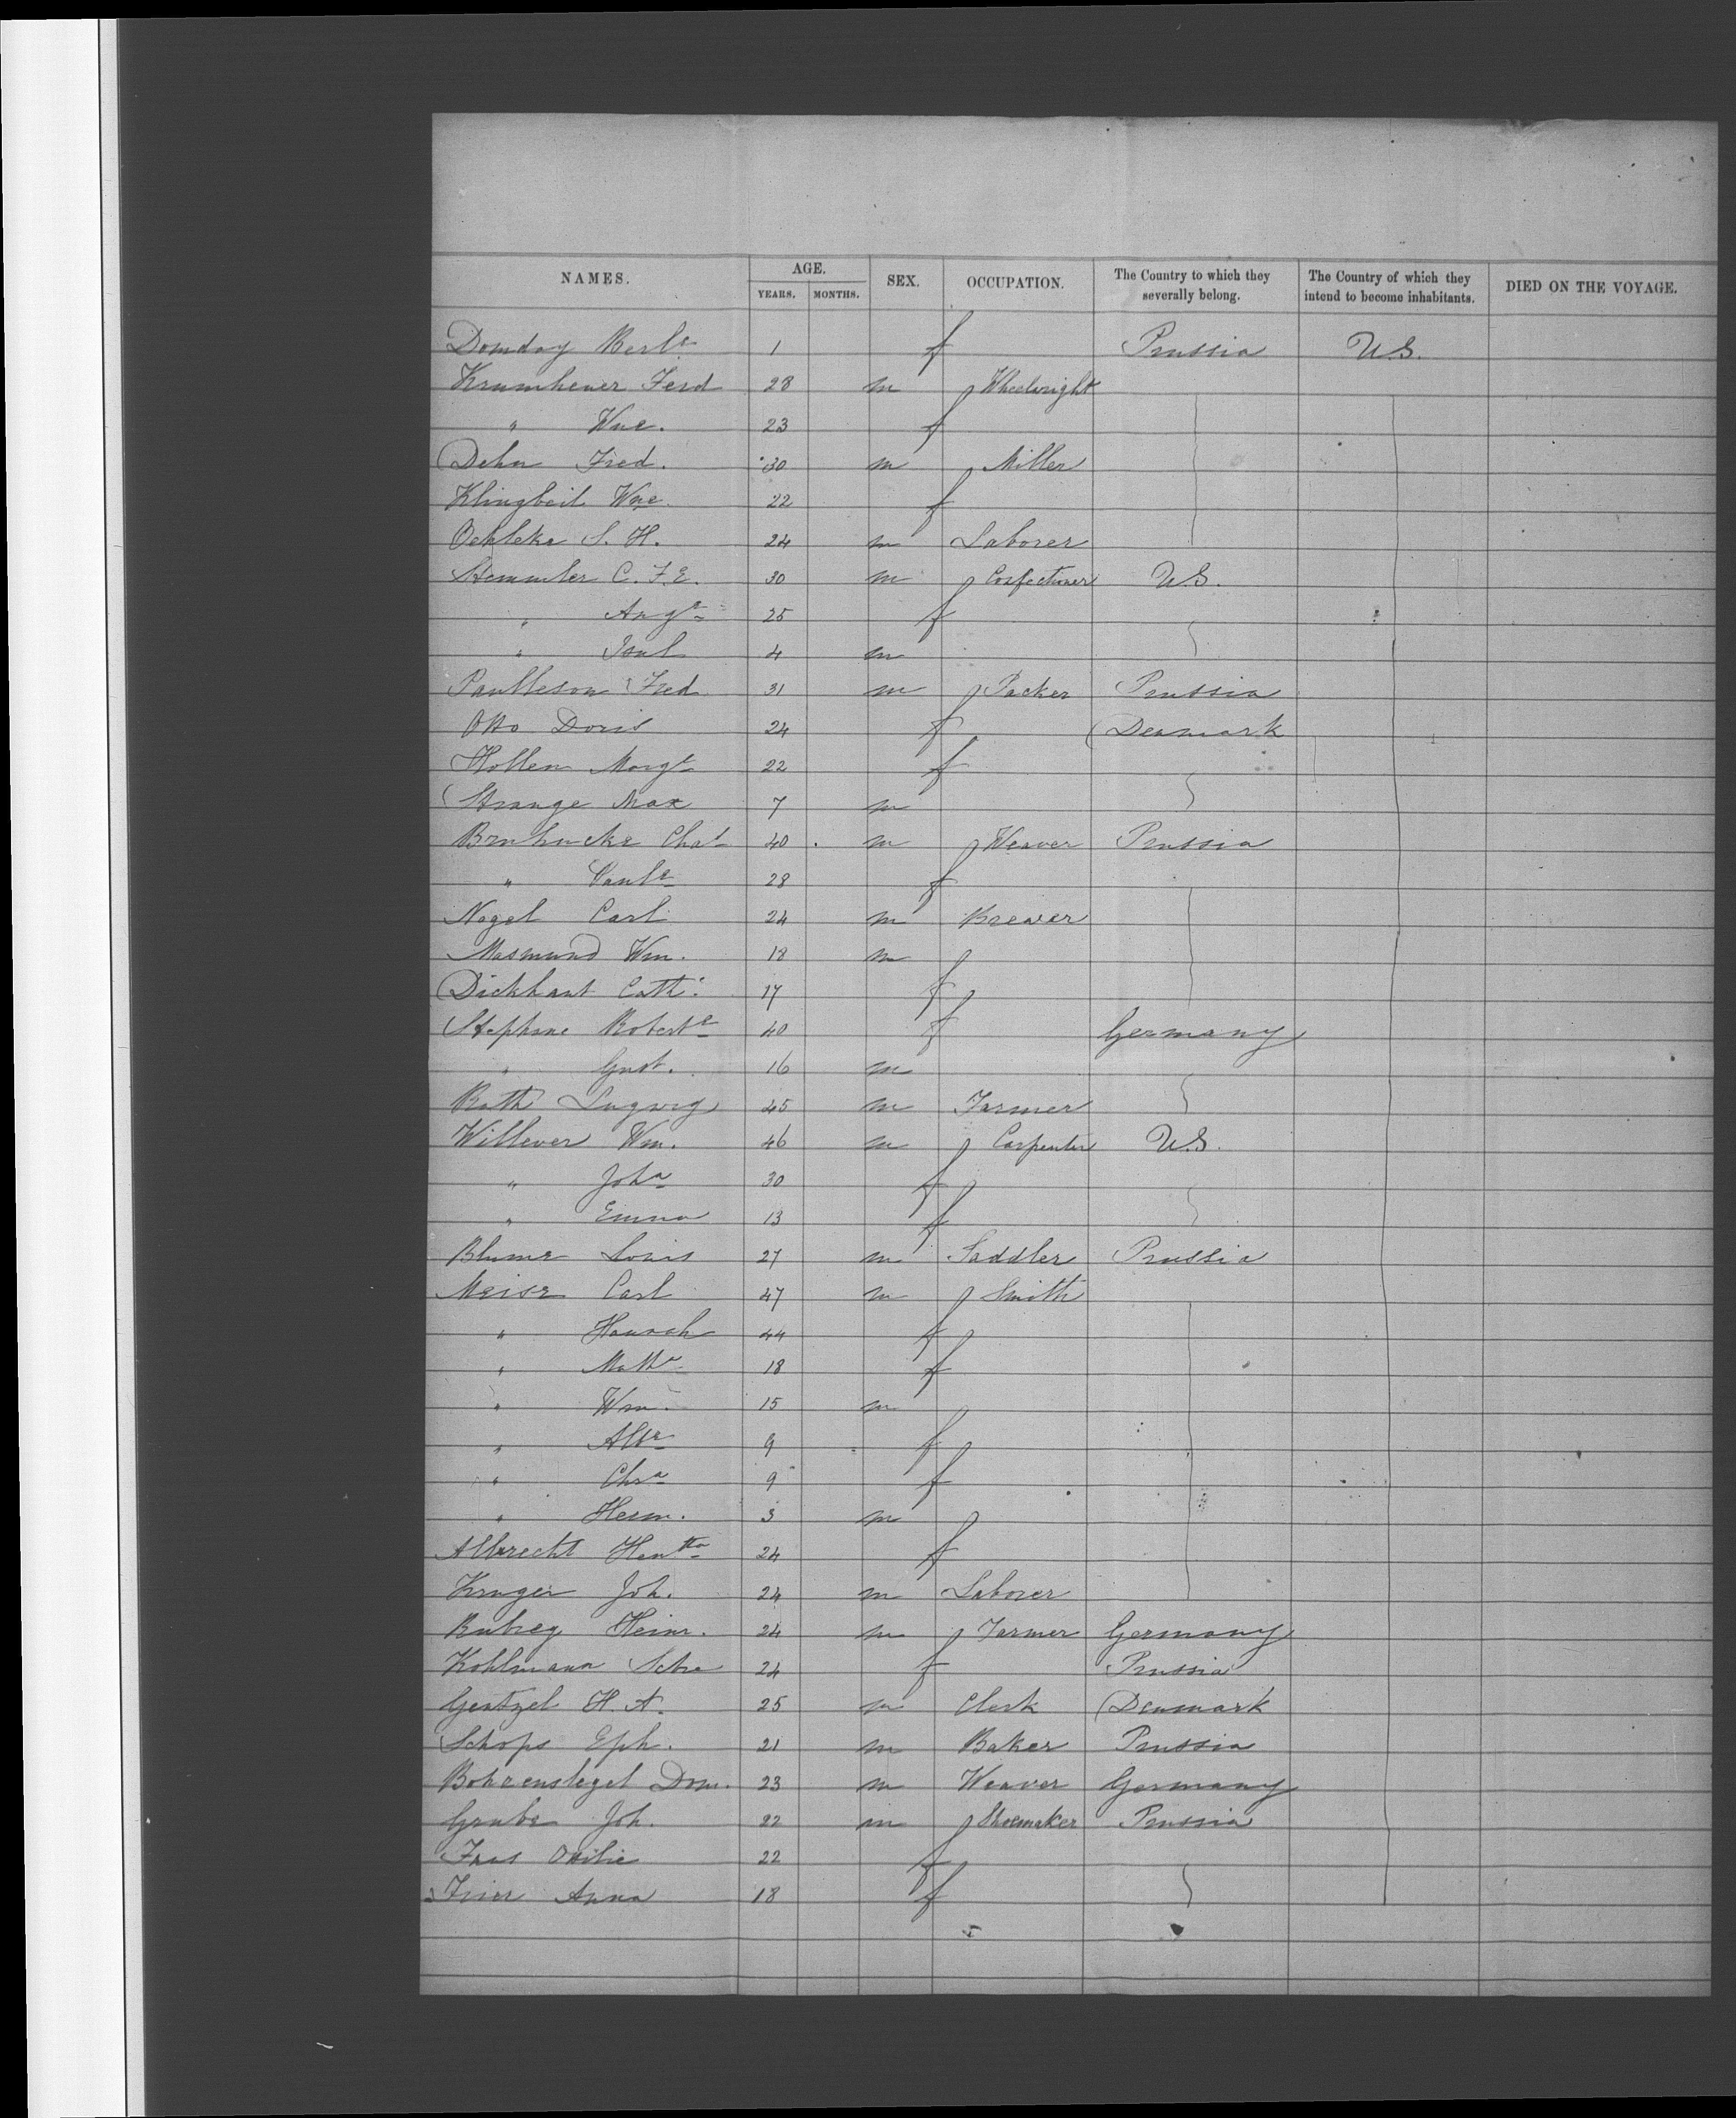 NAMES. AGE. SEX. OCCUPATION. The Country to which they severally belong. The Country of which they intend to become inhabitants. DIED ON THE VOYAGE.
YEARS. MONTHS.
Domday 1 f Prussia U.S.
Krumhener Ferd 28 m Wheelwright
" Wne. 23 f
Dehn Fred. 30 m Miller
Klingbeil Wne. 22 f
Oehleke S. H. 24 m Laborer
Stemmler C. F. E. 30 m Confectioner U.S.
" Auge 25 f
" Paul 4 m
Paulleson Fred 31 m Packer Prussia
Otto Doris 24 f Denmark
Hollen Margt 22 f
Strange Max 7 m
Chas 40 m Weaver Prussia
" Paule 28 f
Nagel Carl 24 m Brewer
Masmund Wm. 18 m
Dickhaut Cath. 17 f
Stephine Roberte 40 f Germany
" Gust. 16 m
Rath Lugwig 45 m Farmer
Willever Wm. 46 m Carpenter U.S.
" Joha 30 f
" Emma 13 f
Blume Louis 27 m Saddler Prussia
Meise Carl 47 m Smith
" Hanach 44 f
" 18 f
" Wm. 15 m
" Albe 9 f
" Chra 9 f
" Herm. 3 m
Albrecht Hentta 24 f
Kruger Joh. 24 m Laborer
Heinr. 24 m Farmer Germany
Kohlmann 24 f Prussia
Gentzel H. A. 25 m Clerk Denmark
Schops Eph. 21 m Baker Prussia
Bohrenslegel Dom. 23 m Weaver Germany
Grube Joh. 22 m Shoemaker Prussia
Fras Ottilie 22 f
Frier Anna 18 f